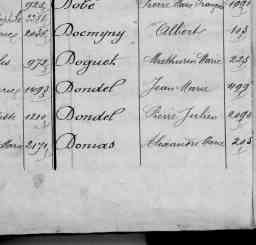 925 Dobé Pierre Marie François 1091
2276
2036 Docmyny Albert 103
972 Doguet Mathurin Marie 225
1493 Dondel Jean Marie 499
1210 Dondel Pierre Julien 2090
Marie 2171 Donias Alexandre Marie 205